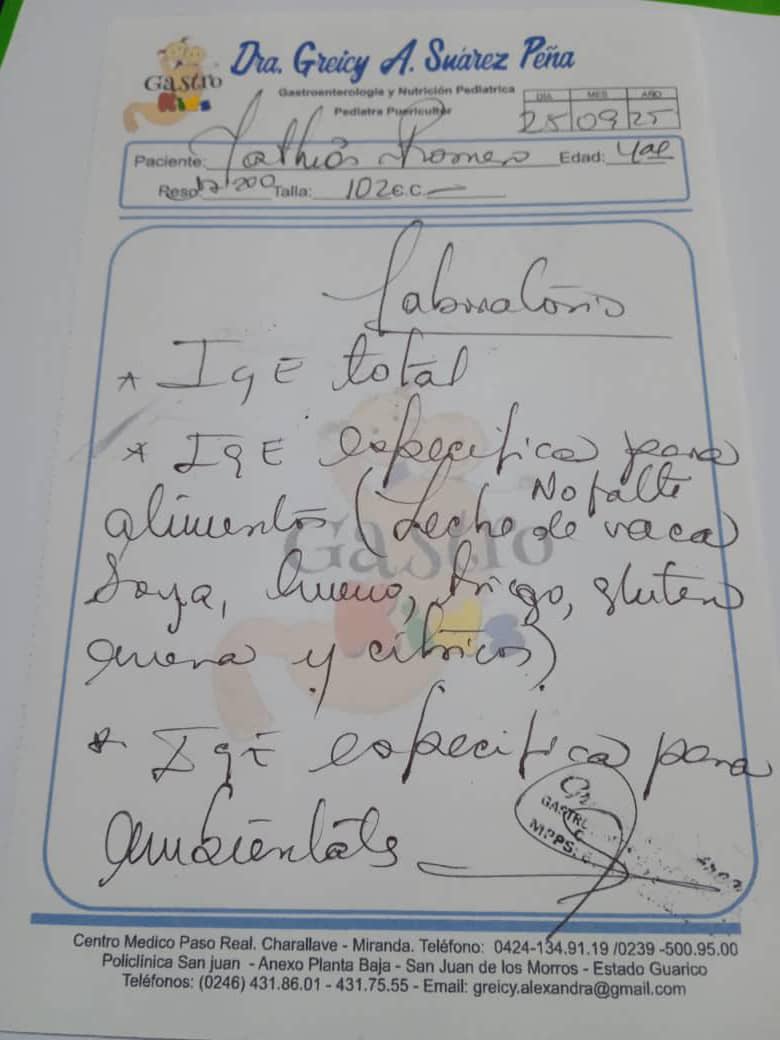 Gastro Kids
Dra. Greicy A. Suárez Peña
Gastroenterologia y Nutrición Pediatrica
Pediatra Puericultor
DIA MES AÑO
25 09 25
Paciente: Mathiás Romero Edad: 4
Peso: 17,200 Talla: 102 c.c.
Laboratorio
* IgE total
* IgE especifica para
alimentos (Leche de vaca
No falte
Soya, huevo, trigo, gluten
avena y citricos).
* IgE especifica para
ambientales
GASTRO
MPPS.
Gastro Kids
Centro Medico Paso Real. Charallave - Miranda. Teléfono: 0424-134.91.19 /0239 -500.95.00
Policlínica San juan - Anexo Planta Baja - San Juan de los Morros - Estado Guarico
Teléfonos: (0246) 431.86.01 - 431.75.55 - Email: greicy.alexandra@gmail.com